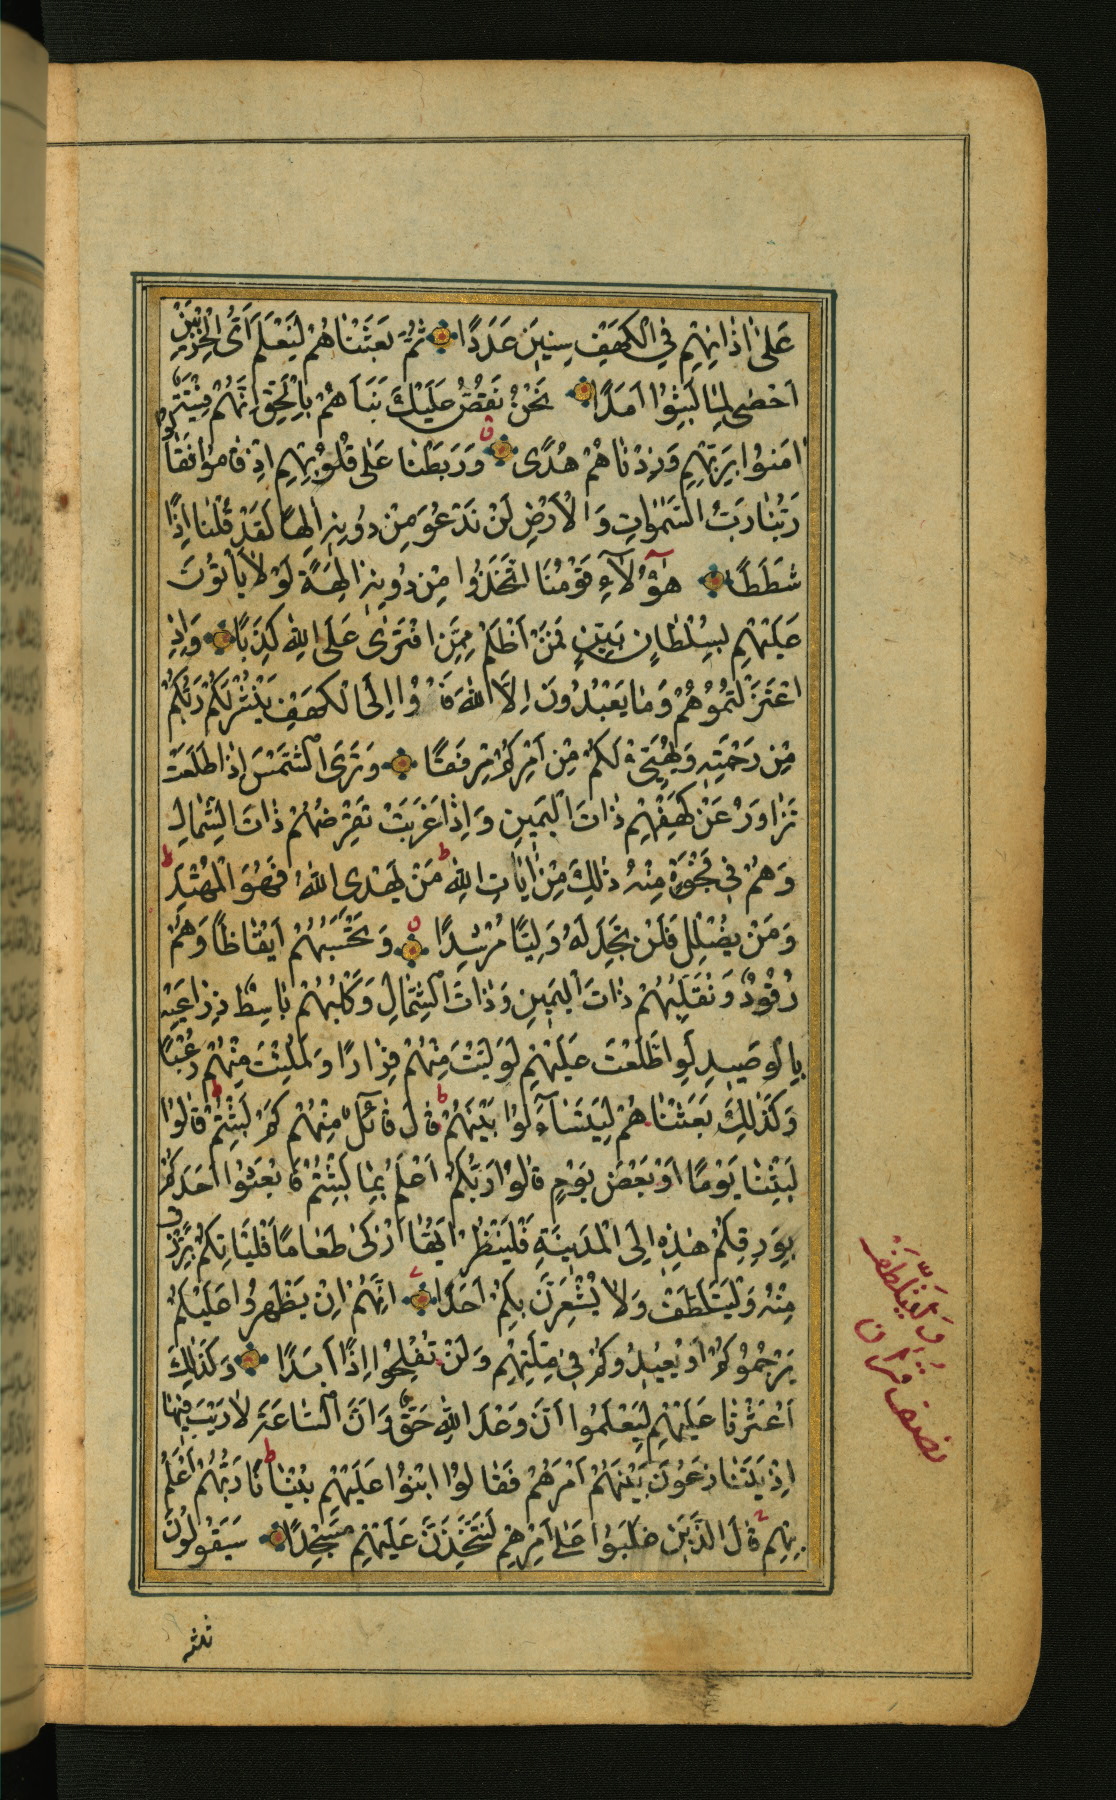 عَلٰى اٰذَانِهِمْ فِي الْكَهْفِ سِنِينَ عَدَدًا ثُمَّ بَعَثْنَاهُمْ لِنَعْلَمَ اَىُّ الْحِزْبَيْنِ
اَحْصٰى لِمَا لَبِثُوا اَمَدًا نَحْنُ نَقُصُّ عَلَيْكَ نَبَأَهُمْ بِالْحَقِّ اِنَّهُمْ فِتْيَةٌ
اٰمَنُوا بِرَبِّهِمْ وَزِدْنَاهُمْ هُدًى وَرَبَطْنَا عَلٰى قُلُوبِهِمْ اِذْ قَامُوا فَقَالُوا
رَبُّنَا رَبُّ السَّمٰوَاتِ وَالْاَرْضِ لَنْ نَدْعُوَ مِنْ دُونِهِ اِلٰهًا لَقَدْ قُلْنَا اِذًا
شَطَطًا هٰؤُلَاءِ قَوْمُنَا اتَّخَذُوا مِنْ دُونِهِ اٰلِهَةً لَوْلَا يَأْتُونَ
عَلَيْهِمْ بِسُلْطَانٍ بَيِّنٍ فَمَنْ اَظْلَمُ مِمَّنِ افْتَرٰى عَلَى اللّٰهِ كَذِبًا وَاِذِ
اعْتَزَلْتُمُوهُمْ وَمَا يَعْبُدُونَ اِلَّا اللّٰهَ فَأْوُا اِلَى الْكَهْفِ يَنْشُرْ لَكُمْ رَبُّكُمْ
مِنْ رَحْمَتِهِ وَيُهَيِّئْ لَكُمْ مِنْ اَمْرِكُمْ مِرْفَقًا وَتَرَى الشَّمْسَ اِذَا طَلَعَتْ
تَزَاوَرُ عَنْ كَهْفِهِمْ ذَاتَ الْيَمِينِ وَاِذَا غَرَبَتْ تَقْرِضُهُمْ ذَاتَ الشِّمَالِ
وَهُمْ فِي فَجْوَةٍ مِنْهُ ذٰلِكَ مِنْ اٰيَاتِ اللّٰهِ ط مَنْ يَهْدِي اللّٰهُ فَهُوَ الْمُهْتَدِ ط
وَمَنْ يُضْلِلْ فَلَنْ تَجِدَ لَهُ وَلِيًّا مُرْشِدًا وَتَحْسَبُهُمْ اَيْقَاظًا وَهُمْ
رُقُودٌ وَنُقَلِّبُهُمْ ذَاتَ الْيَمِينِ وَذَاتَ الشِّمَالِ وَكَلْبُهُمْ بَاسِطٌ ذِرَاعَيْهِ
بِالْوَصِيدِ لَوِ اطَّلَعْتَ عَلَيْهِمْ لَوَلَّيْتَ مِنْهُمْ فِرَارًا وَلَمُلِئْتَ مِنْهُمْ رُعْبًا
وَكَذٰلِكَ بَعَثْنَاهُمْ لِيَتَسَاۤءَلُوا بَيْنَهُمْ ط قَالَ قَائِلٌ مِنْهُمْ كَمْ لَبِثْتُمْ ط قَالُوا
لَبِثْنَا يَوْمًا اَوْ بَعْضَ يَوْمٍ قَالُوا رَبُّكُمْ اَعْلَمُ بِمَا لَبِثْتُمْ فَابْعَثُوا اَحَدَكُمْ
بِوَرِقِكُمْ هٰذِهِ اِلَى الْمَدِينَةِ فَلْيَنْظُرْ اَيُّهَا اَزْكٰى طَعَامًا فَلْيَأْتِكُمْ بِرِزْقٍ
مِنْهُ وَلْيَتَلَطَّفْ وَلَا يُشْعِرَنَّ بِكُمْ اَحَدًا اِنَّهُمْ اِنْ يَظْهَرُوا عَلَيْكُمْ
يَرْجُمُوكُمْ اَوْ يُعِيدُوكُمْ فِي مِلَّتِهِمْ وَلَنْ تُفْلِحُوا اِذًا اَبَدًا وَكَذٰلِكَ
اَعْثَرْنَا عَلَيْهِمْ لِيَعْلَمُوا اَنَّ وَعْدَ اللّٰهِ حَقٌّ وَاَنَّ السَّاعَةَ لَا رَيْبَ فِيهَا
اِذْ يَتَنَازَعُونَ بَيْنَهُمْ اَمْرَهُمْ فَقَالُوا ابْنُوا عَلَيْهِمْ بُنْيَانًا ط رَبُّهُمْ اَعْلَمُ
بِهِمْ قَالَ الَّذِينَ غَلَبُوا عَلٰى اَمْرِهِمْ لَنَتَّخِذَنَّ عَلَيْهِمْ مَسْجِدًا سَيَقُولُونَ
نصف قران
ثلثة